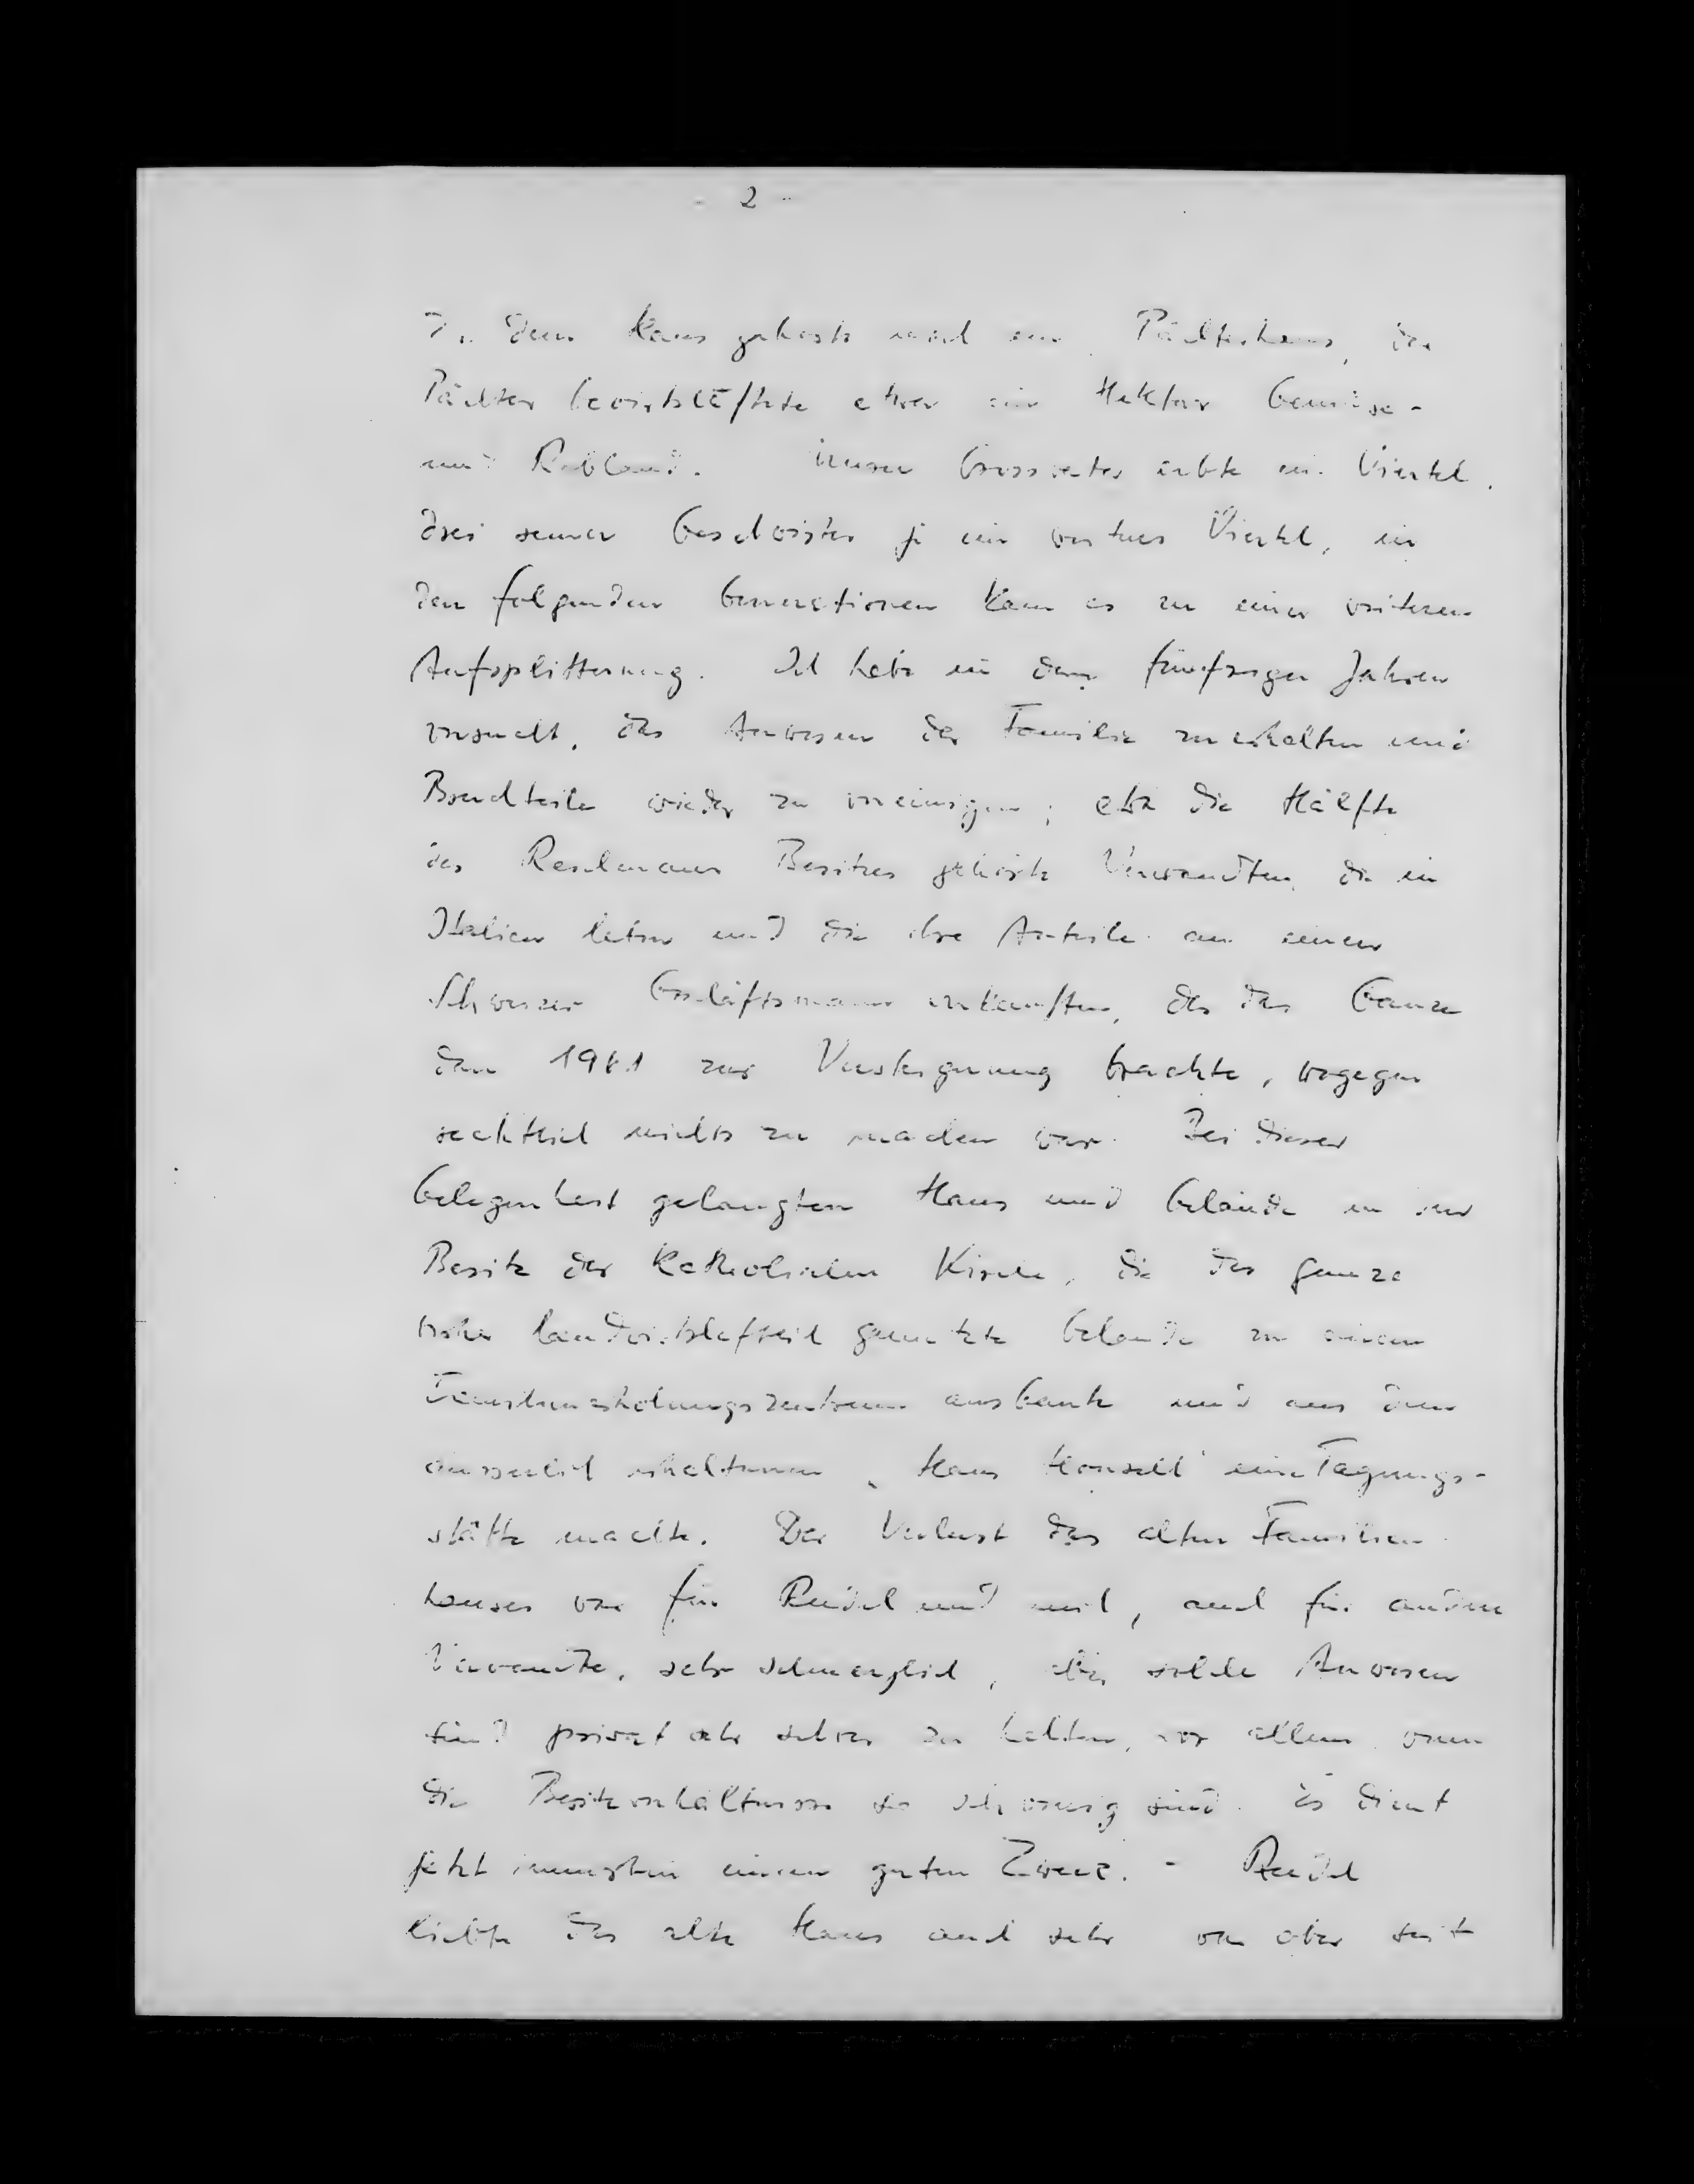 - 2 -
Zu dem Haus gehörte noch ein Pächterhaus, der
Pächter bewirtschaftete etwa ein Hektar Gemüse-
und Rebland. Unser Grossvater erbte ein Viertel,
drei seiner Geschwister je ein weiteres Viertel, in
den folgenden Generationen kam es zu einer weiteren
Aufsplitterung. Ich habe in den fünfziger Jahren
versucht, das Anwesen der Familie zu erhalten und
Bruchteile wieder zu vereinigen; etwa die Hälfte
des Reichenauer Besitzes gehörte Verwandten, die in
Italien lebten und die ihre Anteile an einen
Schweizer Geschäftsmann verkauften, der das Ganze
dann 1961 zur Versteigerung brachte, wogegen
rechtlich nichts zu machen war. Bei dieser
Gelegenheit gelangten Haus und Gelände in den
Besitz der Katholischen Kirche, die das ganze
früher landwirtschaftlich genutzte Gelände zu einem
Familienerholungszentrum ausbaute und aus dem
äusserlich erhaltenen "Haus Honsell" eine Tagungs-
stätte machte. Der Verlust des alten Familien-
hauses war für Reidel und mich, auch für andere
Verwandte, sehr schmerzlich, aber solche Anwesen
sind privat sehr schwer zu halten, vor allem wenn
die Besitzverhältnisse so schwierig sind. Es dient
jetzt immerhin einem guten Zweck. - Reidel
liebte das alte Haus auch sehr, war aber seit